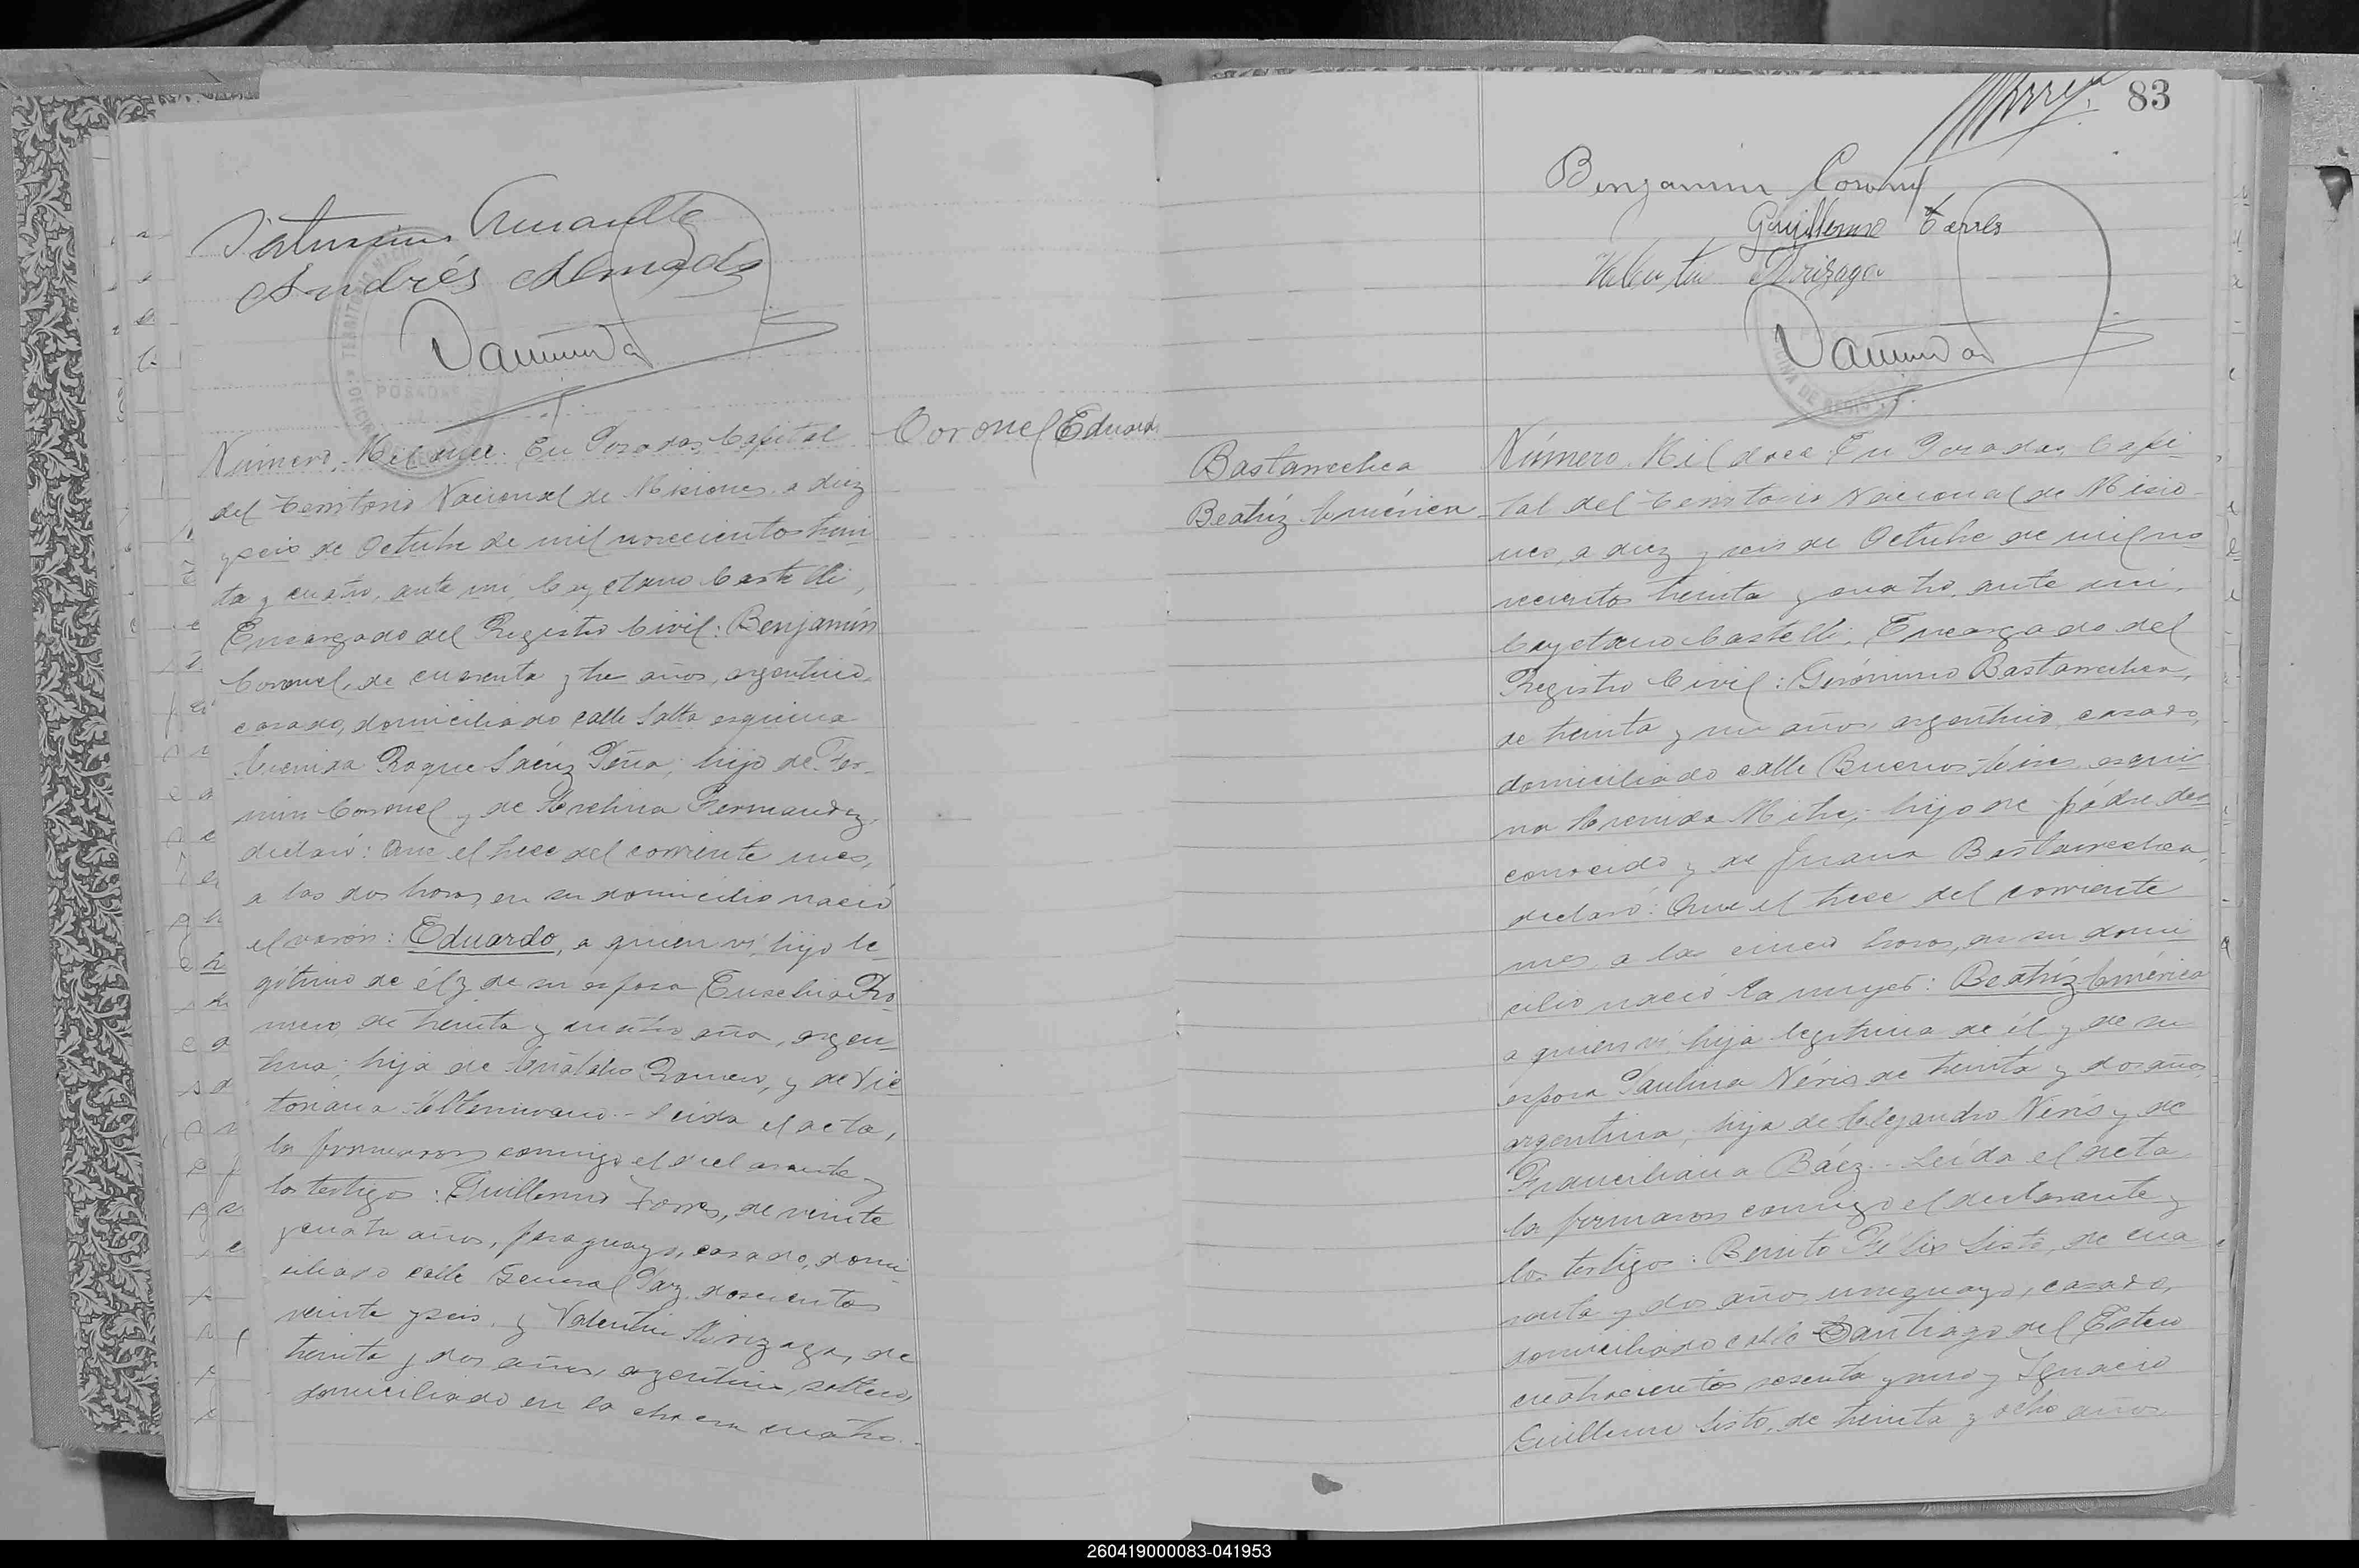 Saturnino
Andrés Almada
POSADAS
Número Mil once. En Posadas, Capital
del Territorio Nacional de Misiones, a diez
y seis de Octubre de mil novecientos trein
ta y cuatro, ante mí, Cayetano Castelli,
Encargado del Registro Civil: Benjamín
Coronel, de cuarenta y tre años, argentino,
casado, domiciliado calle Salta esquina
Avenida Roque Sáenz Peña; hijo de Fer-
min Coronel y de Avelina Fernandez,
declaró: Que el trece del corriente mes,
a las dos horas, en su domicilio nació
el varón: Eduardo, a quien ví, hijo le-
gítimo de él y de su esposa Eusebia Ro
mero, de treinta y cuatro años, argen-
tina; hija de Romero, y de Vic
toriana Altamirano.- Leída el acta,
la firmaron conmigo el declarante y
los testigos: Guillermo Torres, de veinte
y cuatro años, paraguayo, casado, domi-
ciliado calle General Paz doscientos
veinte y seis, y Valentin Arizaga, de
treinta y dos años, argentino, soltero,
domiciliado en la chacra cuatro.-
Coronel Eduard
83
Benjamin Coronel
Guillermo Torres
Valentin Arizaga
Bastarrechea
Beatríz América
Número Mil doce. En Posadas, Capi-
tal del Territorio Nacional de Misio-
nes, a diez y seis de Octubre de mil no
vecientos treinta y cuatro, ante mí,
Cayetano Castelli, Encargado del
Registro Civil: Gerónimo Bastarrechea,
de treinta y un años, argentino, casado,
domiciliado calle Buenos Aires esqui-
na Avenida Mitre; hijo de pádre des
conocido y de Juana Bastarrechea,
declaró: Que el trece del corriente
mes, a las cinco horas, en su domi
cilio nació la mujer: Beatríz América
a quien ví, hija legítima de él y de su
esposa Paulina Néris de treinta y dos años,
argentina, hija de Alejandro Neris y de
Franciliana Báez.- Leída el acta
la firmaron conmigo el declarante y
los testigos: Benito Félix Sisto, de cua
renta y dos años, uruguayo, casado,
domiciliado calle Santiago del Estero
cuatrocientos sesenta y uno y Ignacio
Guillermo Sisto, de treinta y ocho años
260419000083-041953